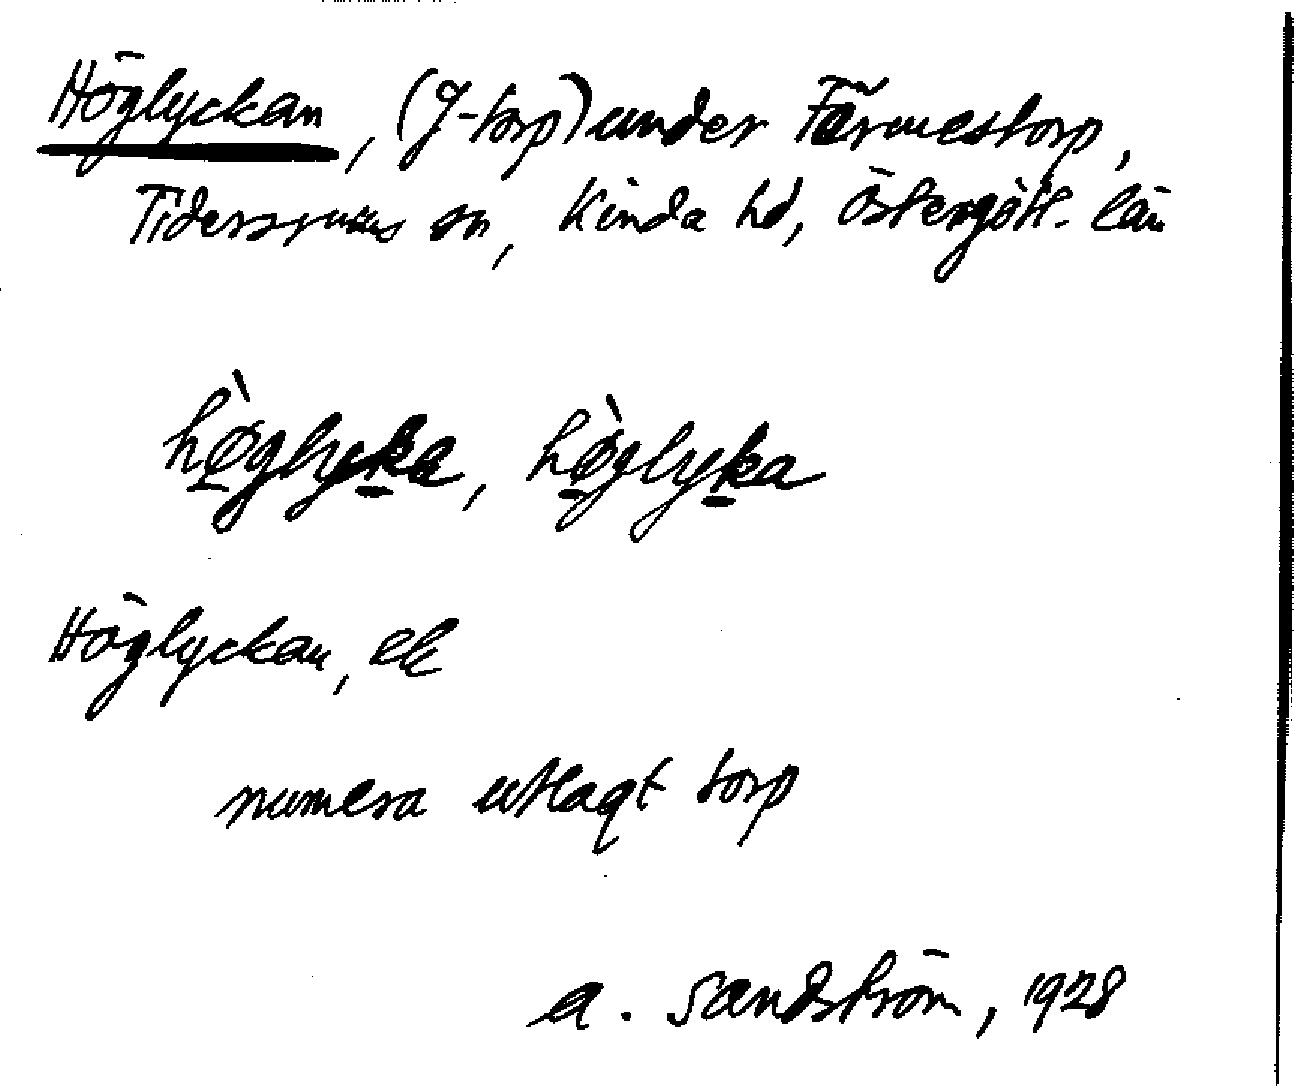 Höglyckan, (J-torp) under Färmestorp,
Tidersrums sn, Kinda hd, Östergötl. län
hø̀glyka, hø̀glyka
Höglyckan, ek
numera utlagt torp
A. Sandström, 1928